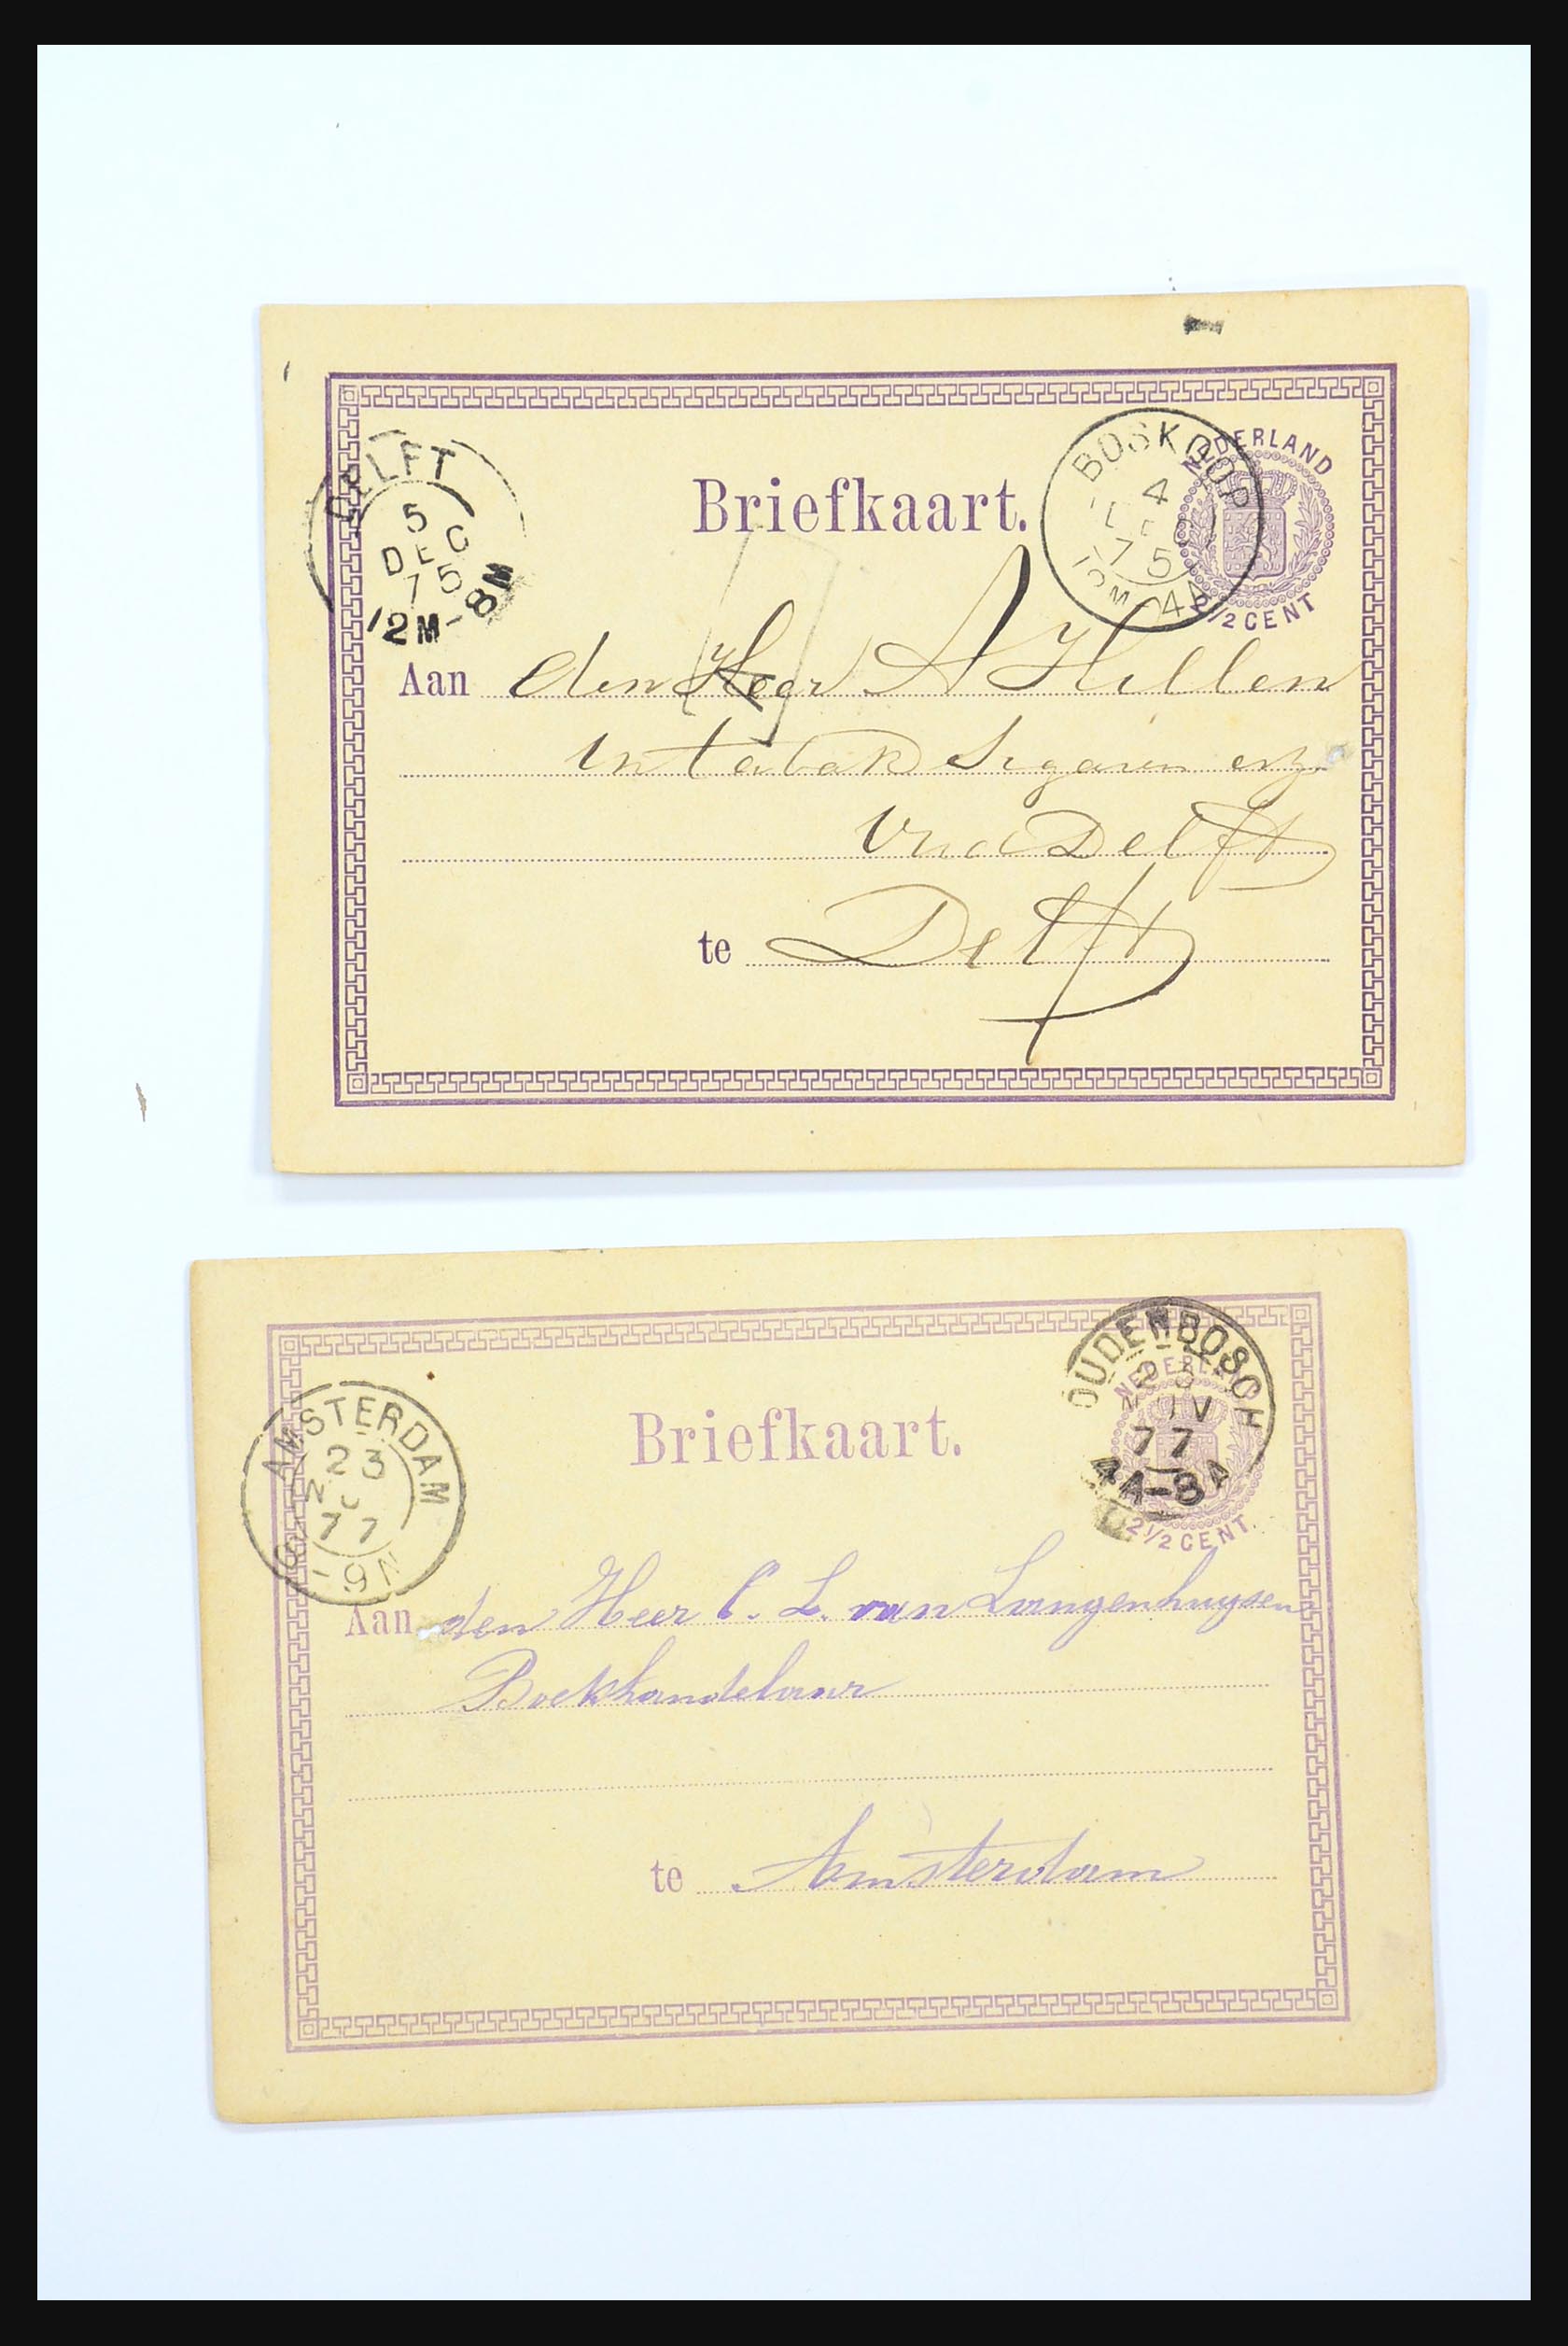 DELFT
5
DEC
75
12M-8M
BOSKOOP
4
75
NEDERLAND
2½ CENT
Briefkaart.
Aan den Heer A Hillen
in tabak Sigaren enz
Delft
te Delft
AMSTERDAM
23
77
OUDENBOSCH
23
77
4A-8A
NEDERLAND
2½ CENT.
Briefkaart.
Aan den Heer C. L. van Langenhuysen
Boekhandelaar
te Amsterdam